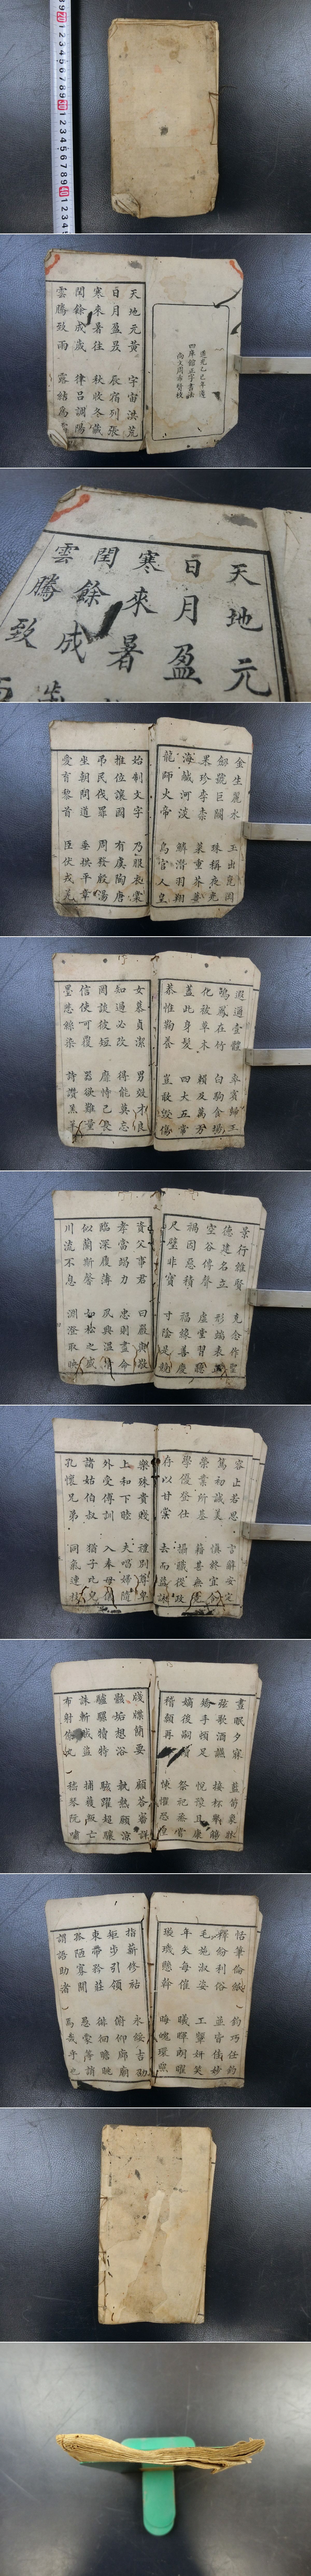 道光乙巳年選
四庫館正字書法
天地元黃 宇宙洪荒
日月盈昃 辰宿列張
寒來暑往 秋收冬藏
閏餘成歲 律呂調陽
雲騰致雨 露結為
天地元
日月盈
寒來暑
閏餘成
雲騰致
金生麗水 玉出崑岡
劍號巨闕 珠稱夜光
果珍李柰 菜重芥薑
海鹹河淡 鱗潛羽翔
龍師火帝 鳥官人皇
始制文字 乃服衣裳
推位讓國 有虞陶唐
弔民伐罪 周發殷湯
坐朝問道 垂拱平章
愛育黎首 臣伏戎羌
遐邇壹體 率賓歸王
鳴鳳在竹 白駒食場
化被草木 賴及萬方
蓋此身髮 四大五常
恭惟鞠養 豈敢毀傷
女慕貞潔 男效才良
知過必改 得能莫忘
罔談彼短 靡恃己長
信使可覆 器欲難量
墨悲絲染 詩讚羔羊
景行維賢 克念作聖
德建名立 形端表正
空谷傳聲 虛堂習聽
禍因惡積 福緣善慶
尺璧非寶 寸陰是競
資父事君 曰嚴與敬
孝當竭力 忠則盡命
臨深履薄 夙興溫凊
似蘭斯馨 如松之盛
川流不息 淵澄取映
容止若思 言辭安定
篤初誠美 慎終宜令
榮業所基 籍甚無竟
學優登仕 攝職從政
存以甘棠 去而益詠
樂殊貴賤 禮別尊卑
上和下睦 夫唱婦隨
外受傅訓 入奉母儀
諸姑伯叔 猶子比兒
孔懷兄弟 同氣連枝
晝眠夕寐 藍筍象牀
弦歌酒讌 接杯舉觴
矯手頓足 悅豫且康
嫡後嗣續 祭祀烝嘗
稽顙再拜 悚懼恐惶
牋牒簡要 顧答審詳
骸垢想浴 執熱願涼
驢騾犢特 駭躍超驤
誅斬賊盜 捕獲叛亡
布射僚丸 嵇琴阮嘯
恬筆倫紙 鈞巧任釣
釋紛利俗 並皆佳妙
毛施淑姿 工顰妍笑
年矢每催 曦暉朗曜
璇璣懸斡 晦魄環照
指薪修祜 永綏吉劭
矩步引領 俯仰廊廟
束帶矜莊 徘徊瞻眺
孤陋寡聞 愚蒙等誚
謂語助者 焉哉乎也